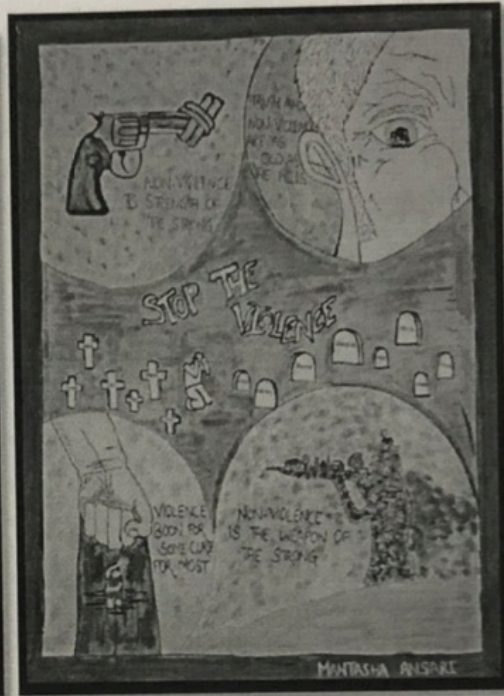 NON-VIOLENCE
IS STRENGTH OF
THE STRONG
TRUTH AND
NON-VIOLENCE
ARE AS
OLD AS
THE HILLS
STOP THE
VIOLENCE
VIOLENCE
BOON FOR
SOME CURSE
FOR MOST
NON-VIOLENCE
IS THE WEAPON OF
THE STRONG
MANTASHA ANSARI